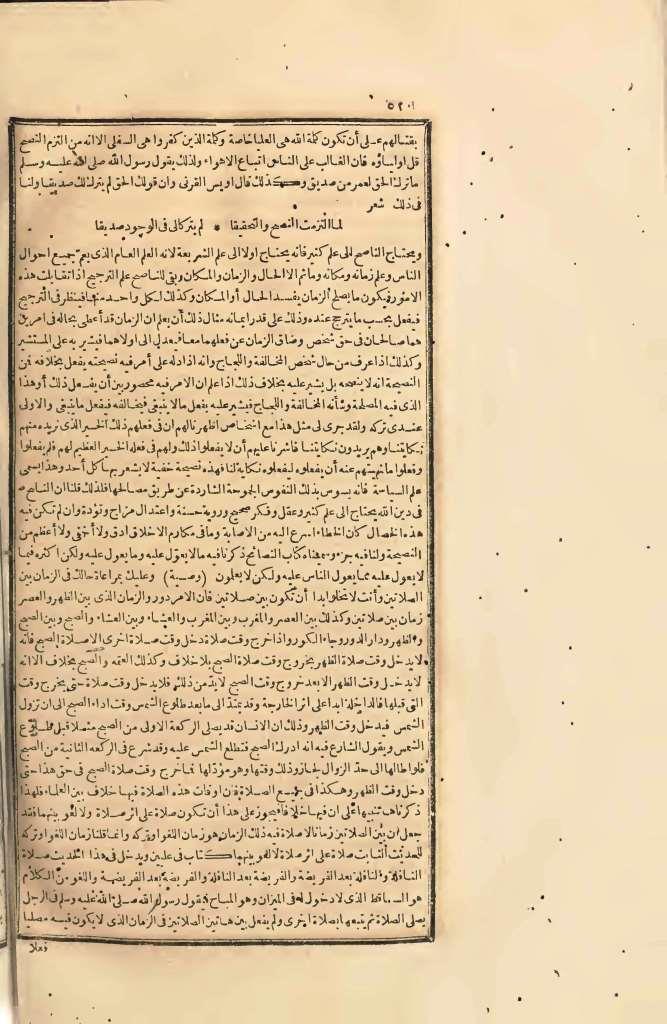 ٥٢٠١
بقتالهم على أن تكون كلمة الله هى العليا خاصة وكلمة الذين كفروا هى السفلى الا انه من التزم النصح
قل اولياؤه فان الغالب على الناس اتباع الاهواء ولذلك يقول رسول الله صلى الله عليه وسلم
ماترك الحق لعمر من صديق وكذلك قال اويس القرنى وان قولك الحق لم يترك لك صديقا ولنا
فى ذلك شعر
لما التزمت النصح والتحقيقا * لم يتركالى فى الوجود صديقا
ويحتاج الناصح الى علم كثير فانه يحتاج اولا الى علم الشريعة لانه العلم العام الذى يعم جميع احوال
الناس وعلم زمانه ومكانه وماثم الا الحال والزمان والمكان وبقى للناصح علم الترجيح اذا تقابلت هذه
الامور فيكون ما يصلح الزمان يفسد الحال أو المكان وكذلك لكل واحد منها فينظر فى الترجيح
فيفعل بحسب ما يترجح عنده وذلك على قدر ايمانه مثال ذلك أن يعلم ان الزمان قد أعطى بحاله فى امرين
هما صالحان فى حق شخص وضاق الزمان عن فعلهما معا فعدل الى اولاهما فيشير به على المستشير
وكذلك اذا عرف من حال شخص المخالفة واللجاج وانه اذا دله على أمر فيه نصيحته يفعل بخلافه فمن
النصيحة انه لا ينصحه بل يشير عليه بخلاف ذلك اذا علم ان الامر فيه محصور بين أن يفعل ذلك أو هذا
الذى فيه المصلحة وشأنه المخالفة واللجاج فيشير عليه بفعل ما لا ينبغى فيخالفه فيفعل ما ينبغى والاولى
عندى تركه ولقد جرى لى مثل هذا مع اشخاص اظهر نالهم ان فى فعلهم ذلك الخير الذى نريده منهم
نكايتنا وهم يريدون نكايتنا فاشرنا عليهم أن لا يفعلوا ذلك ولهم فى فعله الخير العظيم لهم فلم يفعلوا
وفعلوا ما نهيتهم عنه أن يفعلوه ليفعلوه نكاية لنا فهذه نصيحة خفية لا يشعر بها كل أحد وهذا يسمى
علم السياسة فانه يسوس بذلك النفوس الجموحة الشاردة عن طريق مصالحها فلذلك قلنا ان الناصح
فى دين الله يحتاج الى علم كثير وعقل وفكر صحيح وروية حسنة واعتدال مزاج وتؤدة وان لم تكن فيه
هذه الخصال كان الخطاء اسرع اليه من الاصابة وما فى مكارم الاخلاق ادق ولا أخفى ولا أعظم من
النصيحة ولنا فيه جزء سميناه كتاب النصائح ذكرنا فيه ما لا يعول عليه وما يعول عليه ولكن اكثره فيما
لا يعول عليه مما يعول الناس عليه ولكن لا يعلمون (وصية) وعليك بمراعاة حالك فى الزمان بين
الصلاتين وأنت لا تخلو ابدا أن تكون بين صلاتين فان الامر دور والزمان الذى بين الظهر والعصر
زمان بين صلاتين وكذلك بين العصر والمغرب وبين المغرب والعشاء وبين العشاء والصبح وبين الصبح
والظهر ودار الدور وجاء الكور واذا خرج وقت صلاة دخل وقت صلاة اخرى الا صلاة الصبح فانه
لا يدخل وقت صلاة الظهر بخروج وقت صلاة الصبح بلا خلاف وكذلك العتمه والصبح بخلاف الا انه
لا يدخل وقت الظهر الا بعد خروج وقت الصبح لابد من ذلك فلا يدخل وقت صلاة حتى يخرج وقت
التى قبلها فالداخلة ابدا على أثر الخارجة وقد يمتد الى ما بعد طلوع الشمس وقت اداء الصبح الى ان تزول
الشمس فيدخل وقت الظهر وذلك ان الانسان قد يصلى الركعة الاولى من الصبح مثلا قبل طلوع
الشمس ويقول الشارع فيه انه ادرك الصبح فتطلع الشمس عليه وقد شرع فى الركعة الثانية من الصبح
فلو اطالها الى حد الزوال لجاز وذلك وقتها وهو مؤد لها فما خرج وقت صلاة الصبح فى حق هذا حتى
دخل وقت الظهر وهكذا فى جميع الصلاة فان اوقات هذه الصلاة فيها خلاف بين العلماء فلهذا
ذكرناه تنبيها على ان فيها خلافا فيجوز على هذا أن تكون صلاة على اثر صلاة ولا لغو بينهما فقد
جعل ان بين الصلاتين زمانا لا صلاة فيه ذلك الزمان هو زمان اللغو او تركه وانما قلنا زمان اللغو او تركه
للحديث الثابت صلاة على اثر صلاة لا لغو بينهما كتاب فى عليين ويدخل فى هذا الحديث صلاة
النافلة والنافلة بعد الفريضة والفريضة بعد النافلة والفريضة بعد الفريضة واللغو من الكلام
هو الساقط الذى لا دخول له فى الميزان وهو المباح فيقول رسول الله صلى الله عليه وسلم فى الرجل
يصلى الصلاة ثم يتبعها بصلاة اخرى ولم يفعل بين هاتين الصلاتين فى الزمان الذى لا يكون فيه مصليا
فعلا